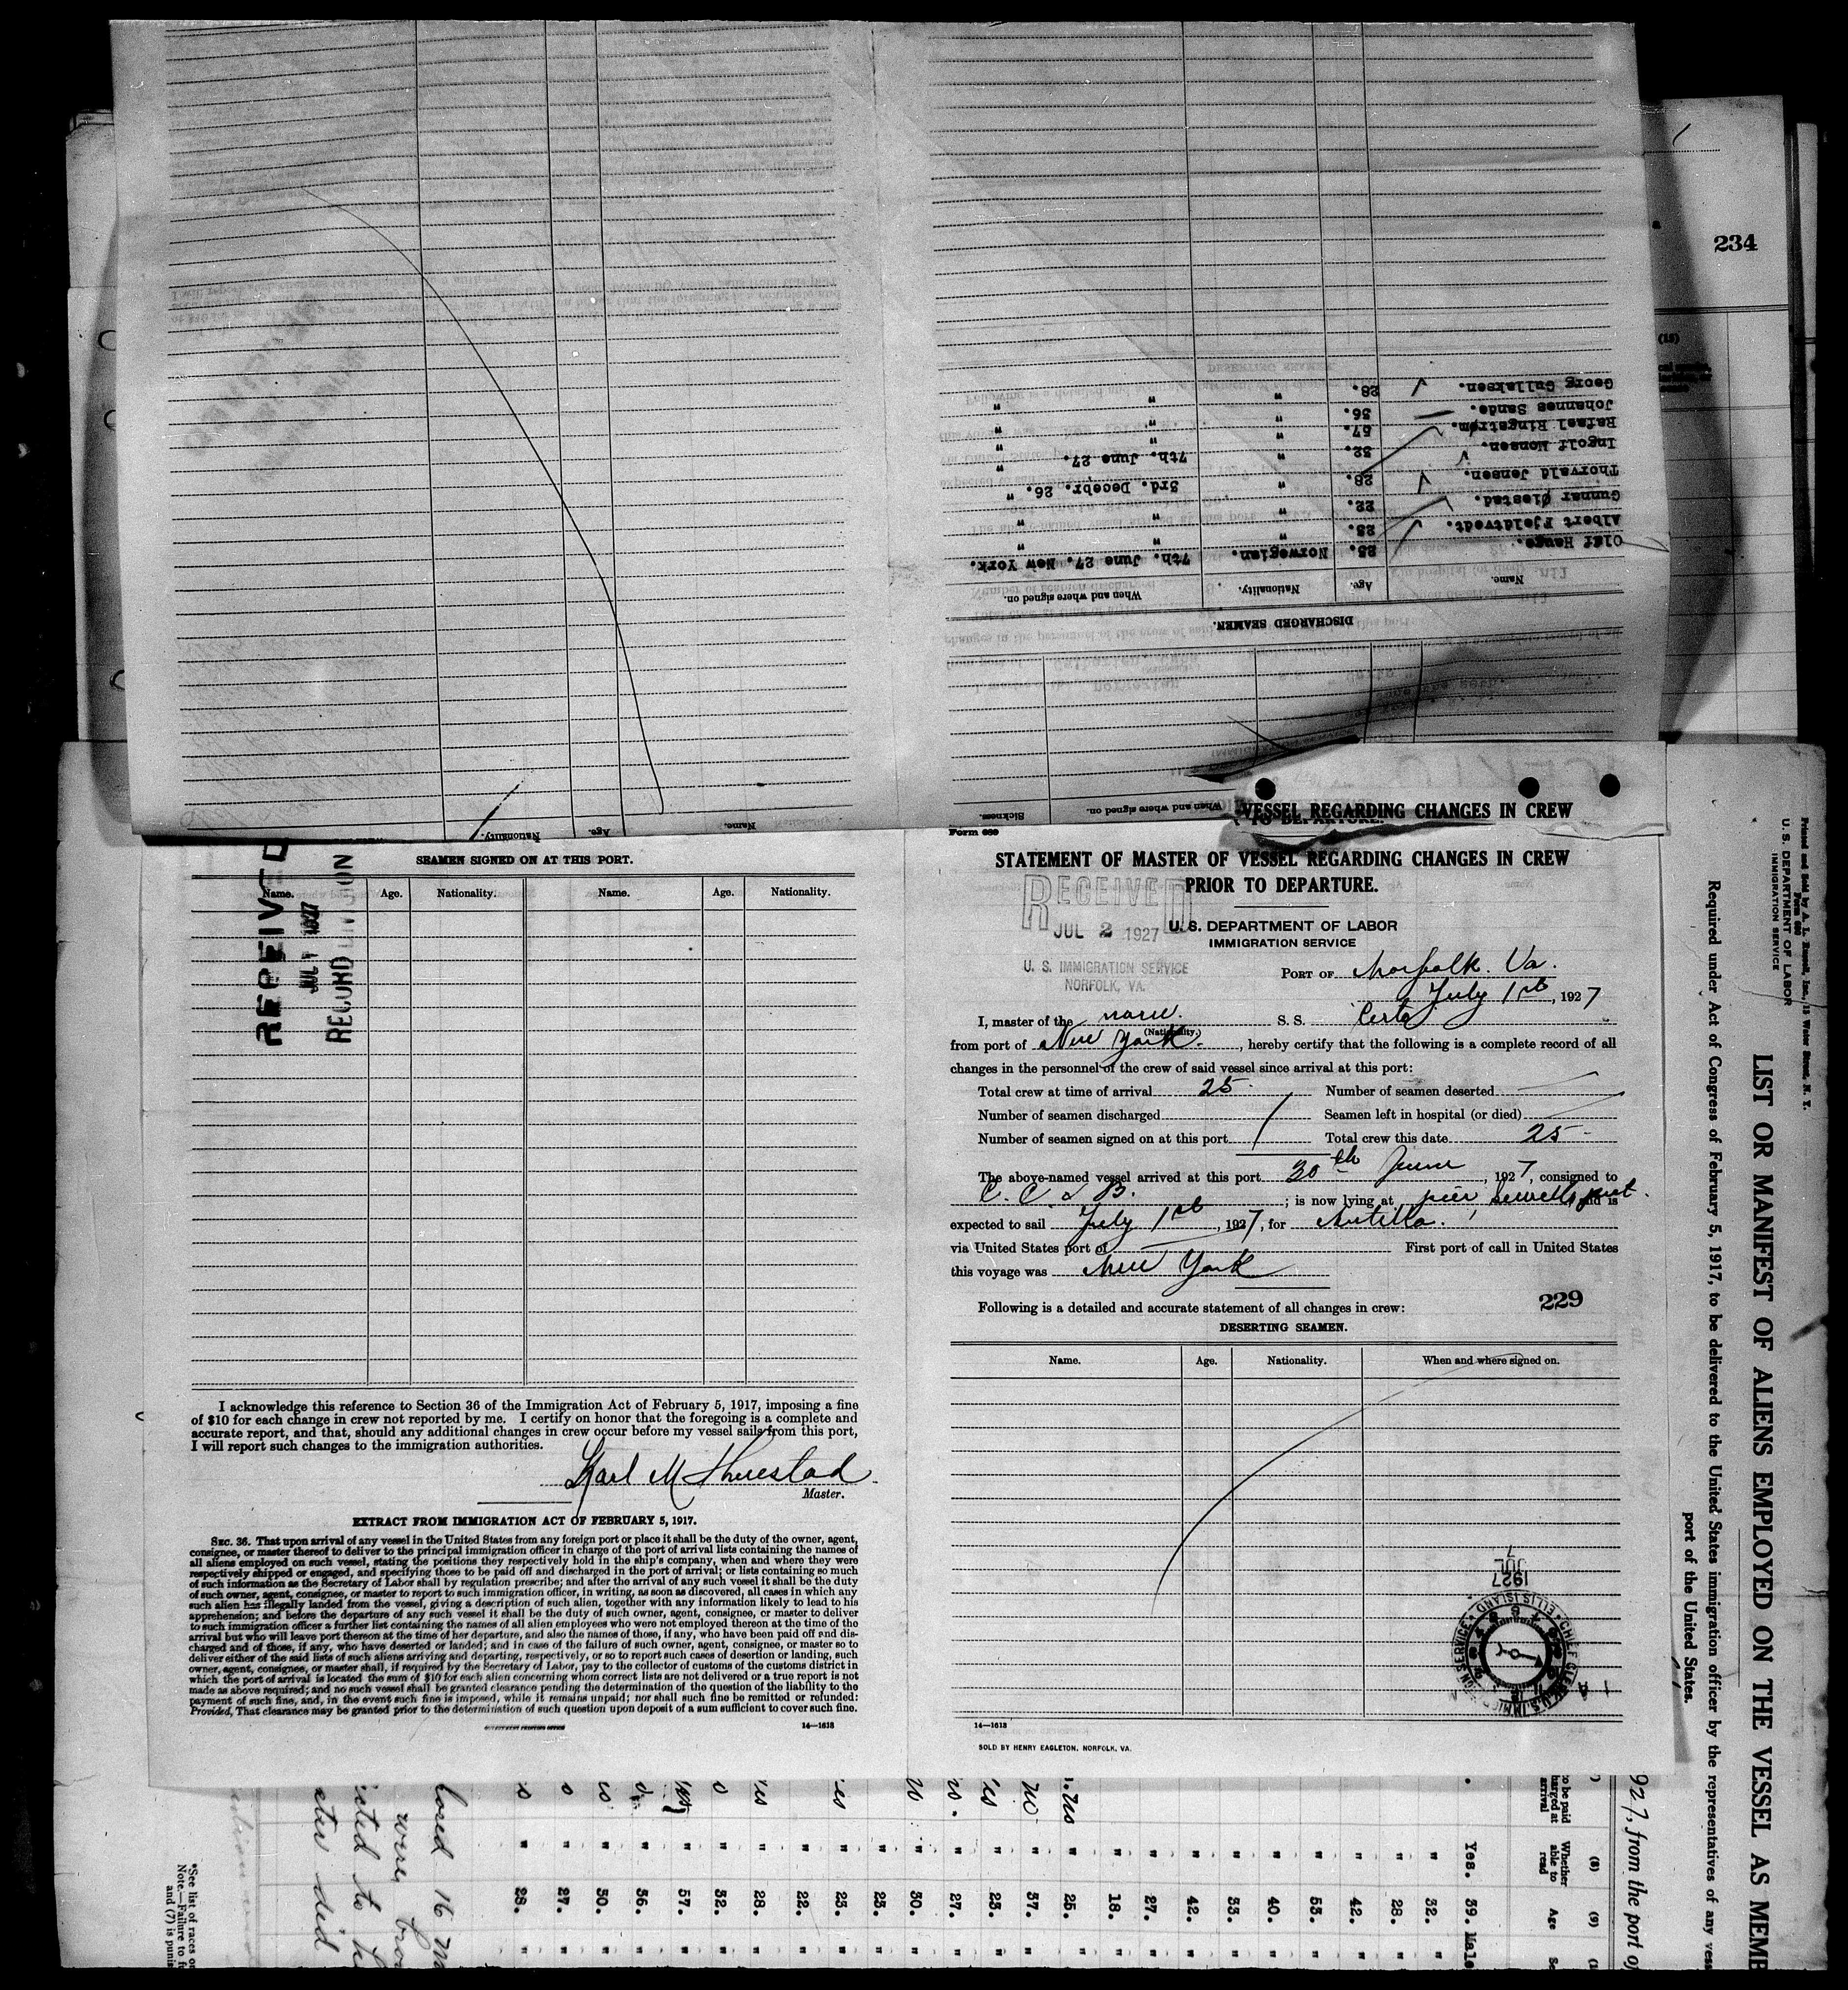 234
(15)
Georg Gullaksen. 28. " " "
Johannes Sande. 36. " " "
Rafael Ringstrøm. 57. " " "
Ingolf Monsen. 32. " 7th. June 27. "
Thorvald Jensen. 28. " 3rd. Decebr. 26. "
Gunnar Øiestad. 22. " " "
Albert Fjeldtvedt. 23. " " "
Olif Hauge. 25. Norwegian. 7th. June 27. New York.
Name. Age. Nationality. When and where signed on.
DISCHARGED SEAMEN.
Name. Age. Nationality.
When and where signed on. Sickness.
VESSEL REGARDING CHANGES IN CREW
TO DEPARTURE.
SEAMEN SIGNED ON AT THIS PORT.
Name. Age. Nationality. Name. Age. Nationality.
RECEIVED
JUL 1927
RECORD DIVISION
I acknowledge this reference to Section 36 of the Immigration Act of February 5, 1917, imposing a fine
of $10 for each change in crew not reported by me. I certify on honor that the foregoing is a complete and
accurate report, and that, should any additional changes in crew occur before my vessel sails from this port,
I will report such changes to the immigration authorities.
Karl M
Master.
EXTRACT FROM IMMIGRATION ACT OF FEBRUARY 5, 1917.
SEC. 36. That upon arrival of any vessel in the United States from any foreign port or place it shall be the duty of the owner, agent,
consignee, or master thereof to deliver to the principal immigration officer in charge of the port of arrival lists containing the names of
all aliens employed on such vessel, stating the positions they respectively hold in the ship's company, when and where they were
respectively shipped or engaged, and specifying those to be paid off and discharged in the port of arrival; or lists containing so much
of such information as the Secretary of Labor shall by regulation prescribe; and after the arrival of any such vessel it shall be the duty
of such owner, agent, consignee, or master to report to such immigration officer, in writing, as soon as discovered, all cases in which any
such alien has illegally landed from the vessel, giving a description of such alien, together with any information likely to lead to his
apprehension; and before the departure of any such vessel it shall be the duty of such owner, agent, consignee, or master to deliver
to such immigration officer a further list containing the names of all alien employees who were not employed thereon at the time of the
arrival but who will leave port thereon at the time of her departure, and also the names of those, if any, who have been paid off and dis-
charged and of those, if any, who have deserted or landed; and in case of the failure of such owner, agent, consignee, or master so to
deliver either of the said lists of such aliens arriving and departing, respectively, or so to report such cases of desertion or landing, such
owner, agent, consignee, or master shall, if required by the Secretary of Labor, pay to the collector of customs of the customs district in
which the port of arrival is located the sum of $10 for each alien concerning whom correct lists are not delivered or a true report is not
made as above required; and no such vessel shall be granted clearance pending the determination of the question of the liability to the
payment of such fine, and, in the event such fine is imposed, while it remains unpaid; nor shall such fine be remitted or refunded:
Provided, That clearance may be granted prior to the determination of such question upon deposit of a sum sufficient to cover such fine.
GOVERNMENT PRINTING OFFICE 14—1618
Form 689
STATEMENT OF MASTER OF VESSEL REGARDING CHANGES IN CREW
PRIOR TO DEPARTURE.
RECEIVED
JUL 2 1927
U. S. IMMIGRATION SERVICE
NORFOLK, VA.
U. S. DEPARTMENT OF LABOR
IMMIGRATION SERVICE
PORT OF Norfolk. Va.
July 1st, 1927
I, master of the norw. S. S. Certo
(Nationality.)
from port of New York., hereby certify that the following is a complete record of all
changes in the personnel of the crew of said vessel since arrival at this port:
Total crew at time of arrival 25 Number of seamen deserted
Number of seamen discharged Seamen left in hospital (or died)
Number of seamen signed on at this port Total crew this date 25
The above-named vessel arrived at this port 30th June, 1927, consigned to
C. C & B. ; is now lying at pier, Sewells point. and is
expected to sail July 1st, 1927, for Antilla.
via United States port of First port of call in United States
this voyage was New York
229
Following is a detailed and accurate statement of all changes in crew:
DESERTING SEAMEN.
Name. Age. Nationality. When and where signed on.
1927
JUL
7
CHIEF CLERK U.S. IMMIGRATION SERVICE ELLIS ISLAND
14—1618
SOLD BY HENRY EAGLETON, NORFOLK, VA.
Printed and Sold by A. L. Russell, Inc., 13 Water Street, N. Y.
Form 680
U. S. DEPARTMENT OF LABOR
IMMIGRATION SERVICE
LIST OR MANIFEST OF ALIENS EMPLOYED ON THE VESSEL AS MEMB
Required under Act of Congress of February 5, 1917, to be delivered to the United States immigration officer by the representatives of any vess
port of the United States.
927, from the port of
(8) (9)
to be paid
harged at
arrival
Whether
able to
read
Age
Yes. 39. Male
" 32. "
" 28. "
" 42. "
" 53. "
" 40. "
" 33. "
" 42. "
" 27. "
" 18. "
" 25. "
" 37. "
" 23. "
" 27. "
" 30. "
" 23. "
" 23. "
" 22. "
" 28. "
" 32. "
" 57. "
" 36. "
" 30. "
" 27. "
" 28. "
*See list of races on
Note.—Failure to f
and (7) is punis